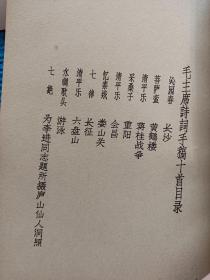 毛主席詩詞手稿十首目录
沁园春 长沙
菩萨蛮 黄鹤楼
清平乐 蒋桂战争
采桑子 重阳
清平乐 会昌
忆秦娥 娄山关
七律 长征
清平乐 六盘山
水调歌头 游泳
七绝 为李进同志题所摄庐山仙人洞照